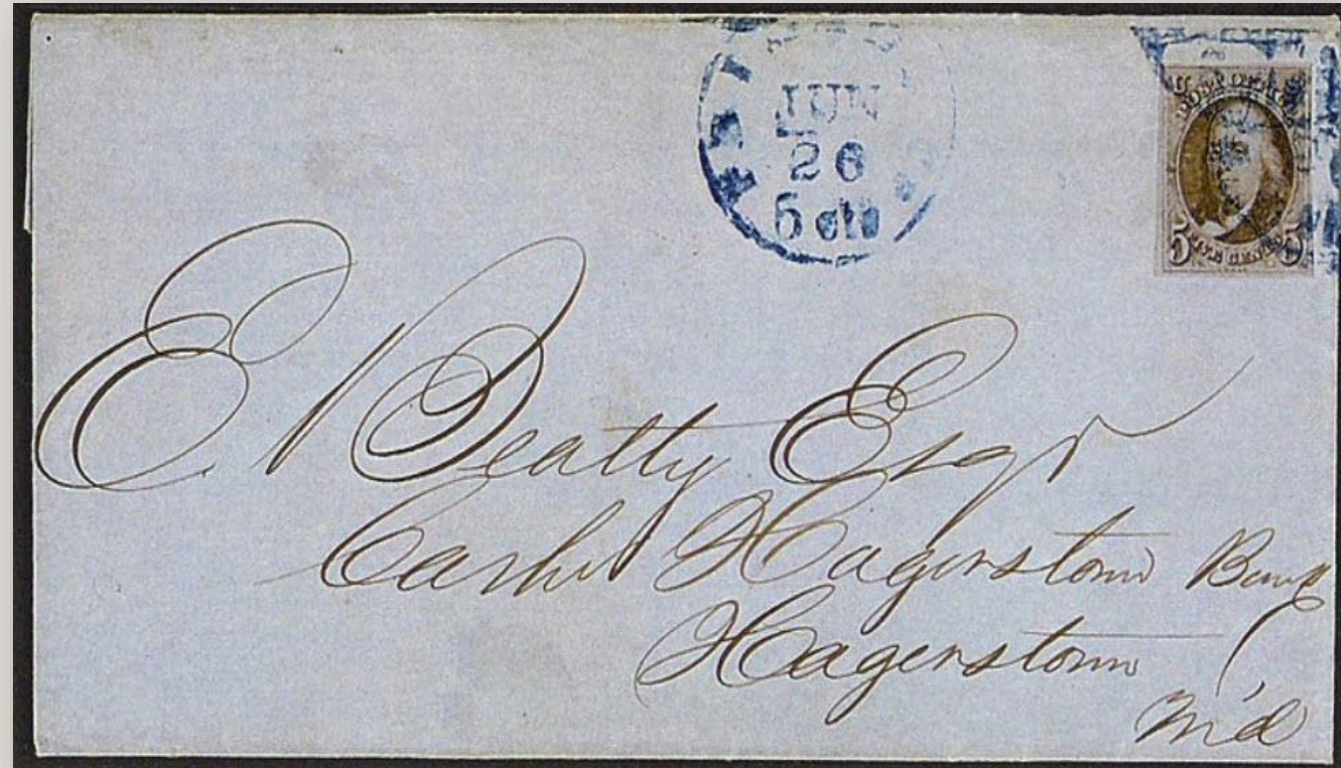 JUN
26
5 cts
POST OFFICE
5 FIVE CENTS 5
E. Beatty Esqr
Cashr Hagerstown Bank
Hagerstown
Md